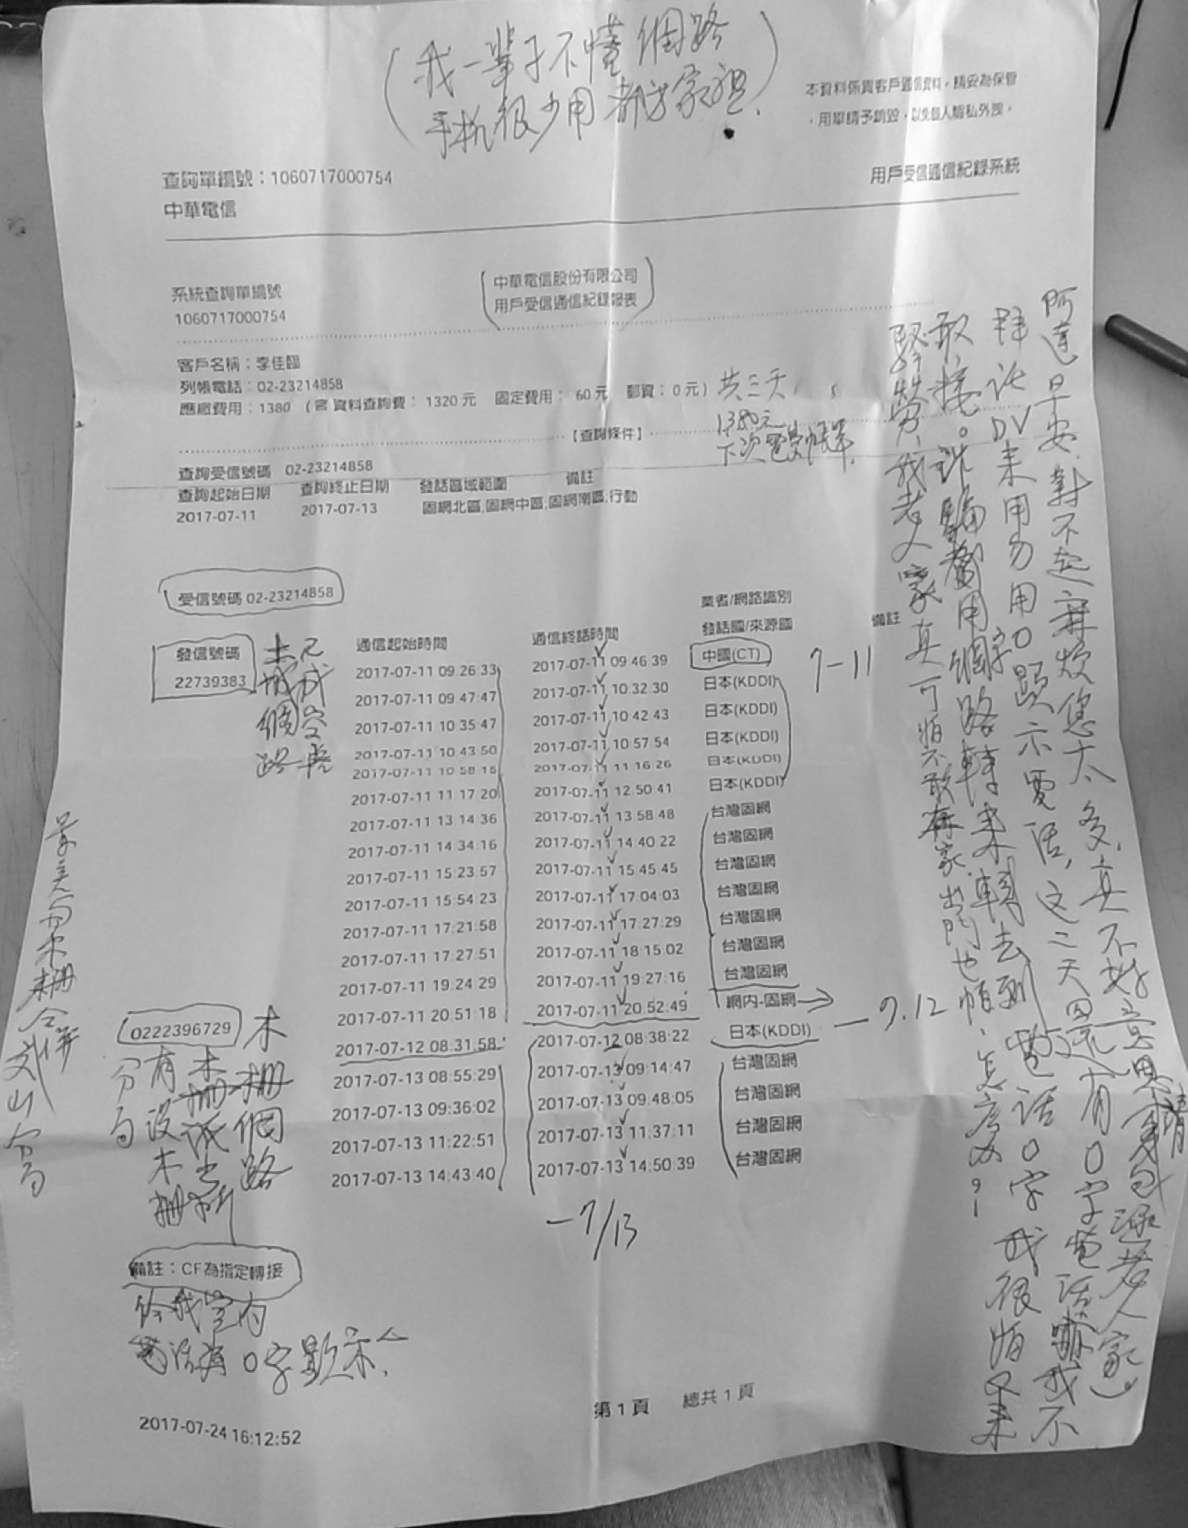 (我一輩子不懂網路
手机很少用都方家裡.)
本資料係貴客戶通信資料，請妥為保管
，用畢請予銷毀，以免個人隱私外洩。
查詢單編號：1060717000754
用戶受信通信紀錄系統
中華電信
系統查詢單編號
1060717000754
中華電信股份有限公司
用戶受信通信紀錄報表
客戶名稱：李佳臨
列帳電話：02-23214858
應繳費用：1380 (含 資料查詢費： 1320 元 固定費用： 60 元 郵資：0 元)
共三天
1380元
下次電費帳單.
【查詢條件】
查詢受信號碼 02-23214858
查詢起始日期 查詢終止日期 發話區域範圍 備註
2017-07-11 2017-07-13 固網北區,固網中區,固網南區,行動
受信號碼 02-23214858
業者/網路識別
發信號碼 通信起始時間 通信終話時間 發話國/來源國 備註
22739383 2017-07-11 09:26:33 2017-07-11 09:46:39 中國(CT)
2017-07-11 09:47:47 2017-07-11 10:32:30 日本(KDDI)
2017-07-11 10:35:47 2017-07-11 10:42:43 日本(KDDI)
2017-07-11 10:43:50 2017-07-11 10:57:54 日本(KDDI)
2017-07-11 10:58:16 2017-07-11 11:16:26 日本(KDDI)
2017-07-11 11:17:20 2017-07-11 12:50:41 日本(KDDI)
2017-07-11 13:14:36 2017-07-11 13:58:48 台灣固網
2017-07-11 14:34:16 2017-07-11 14:40:22 台灣固網
2017-07-11 15:23:57 2017-07-11 15:45:45 台灣固網
2017-07-11 15:54:23 2017-07-11 17:04:03 台灣固網
2017-07-11 17:21:58 2017-07-11 17:27:29 台灣固網
2017-07-11 17:27:51 2017-07-11 18:15:02 台灣固網
2017-07-11 19:24:29 2017-07-11 19:27:16 台灣固網
2017-07-11 20:51:18 2017-07-11 20:52:49 網內-固網
0222396729 2017-07-12 08:31:58 2017-07-12 08:38:22 日本(KDDI)
2017-07-13 08:55:29 2017-07-13 09:14:47 台灣固網
2017-07-13 09:36:02 2017-07-13 09:48:05 台灣固網
2017-07-13 11:22:51 2017-07-13 11:37:11 台灣固網
2017-07-13 14:43:40 2017-07-13 14:50:39 台灣固網
土城網路
7-11
7.12
-7/13
木柵網路
有設木柵
分局
備註：CF為指定轉接
給我室內
電話有0字顯示
阿達早安.對不起麻煩您太太多,真不好意思,請
拜託DV来用勿用0字顯示電話,這三天還有0字電話嚇我不
敢接。詐騙都用網路轉来轉去到電話0字我很怕又来
我老人家真可怕不敢在家.出門也怕.怎麼办?
第 1 頁 總共 1 頁
2017-07-24 16:12:52